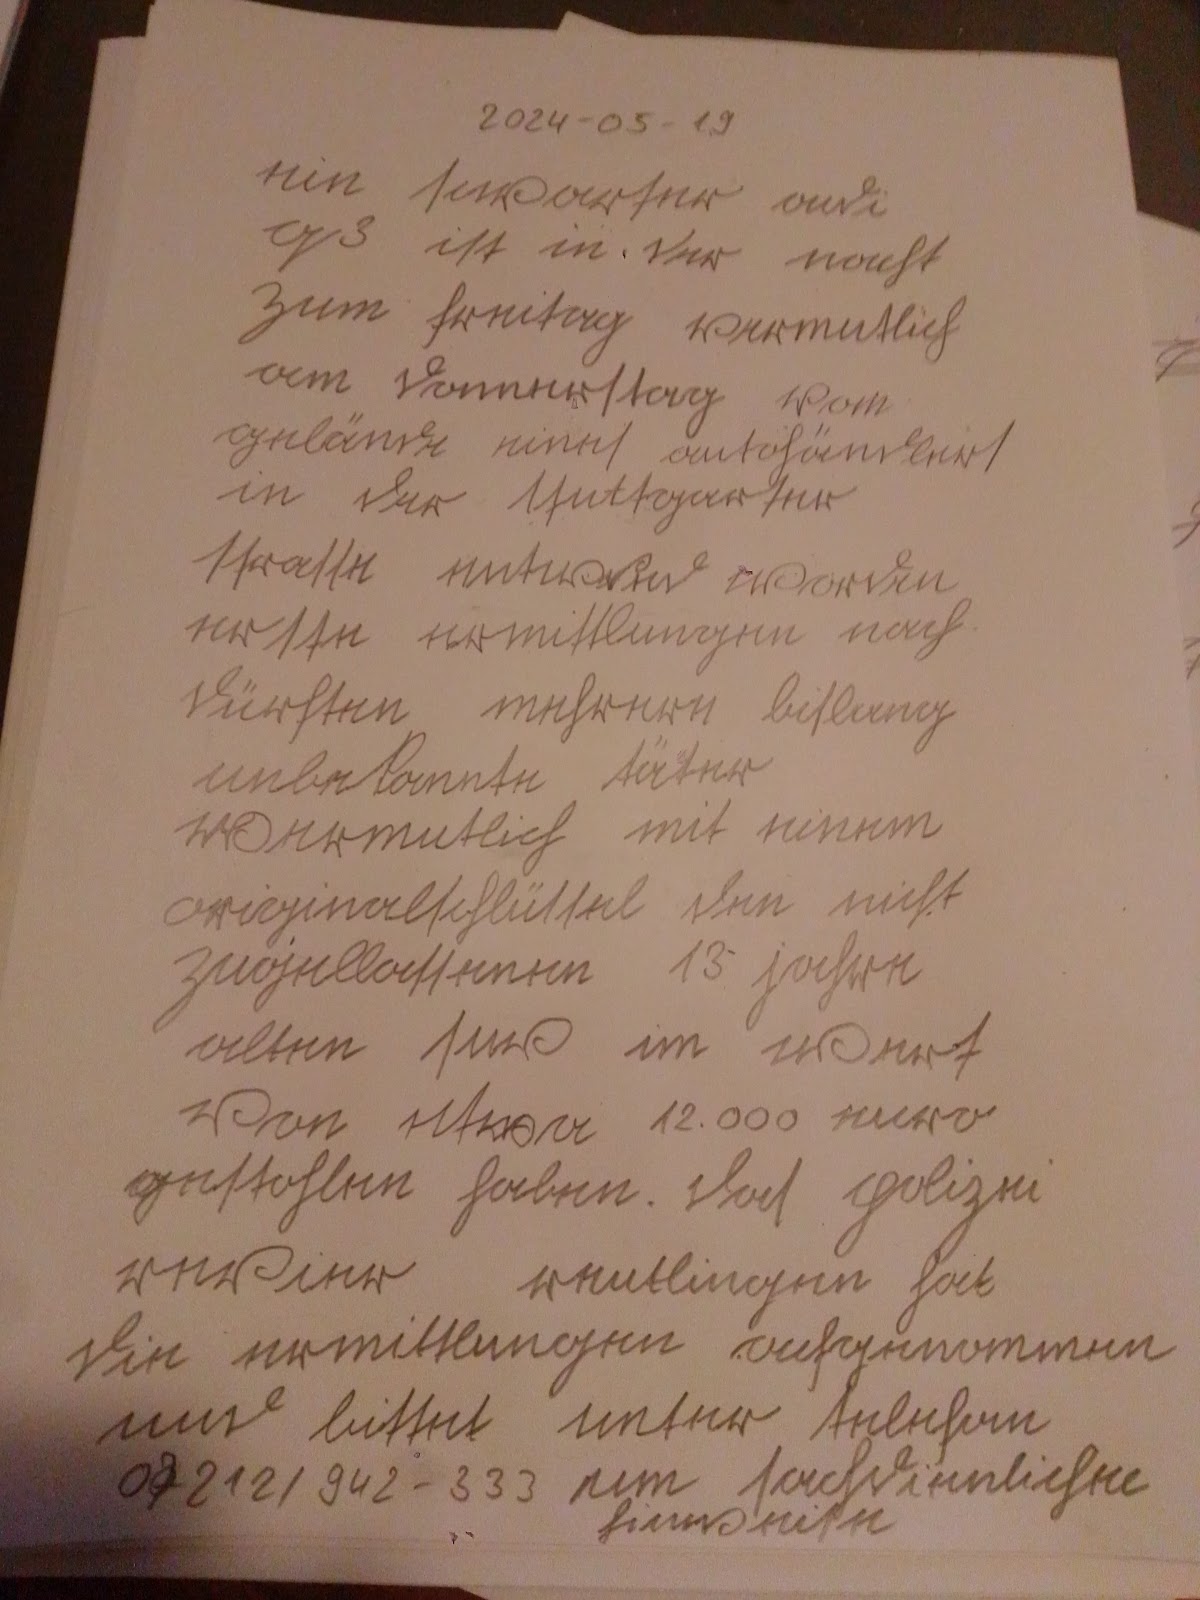 2024-05-19
ein schwarzer audi
q3 ist in der nacht
zum freitag vermutlich
am donnerstag vom
gelände eines autohändlers
in der stuttgarter
strasse entwend worden
erste ermittlungen nach
dürften mehrere bislang
unbekannte täter
vermutlich mit einem
originalschlüssel den nicht
zugellassenen 13 jahre
alten suv im wert
von etwa 12.000 euro
gestohlen haben. das polizei
revier reutlingen hat
die ermittlungen aufgenommen
und bittet unter telefon
07212/942-333 um sachdienliche
hinweise